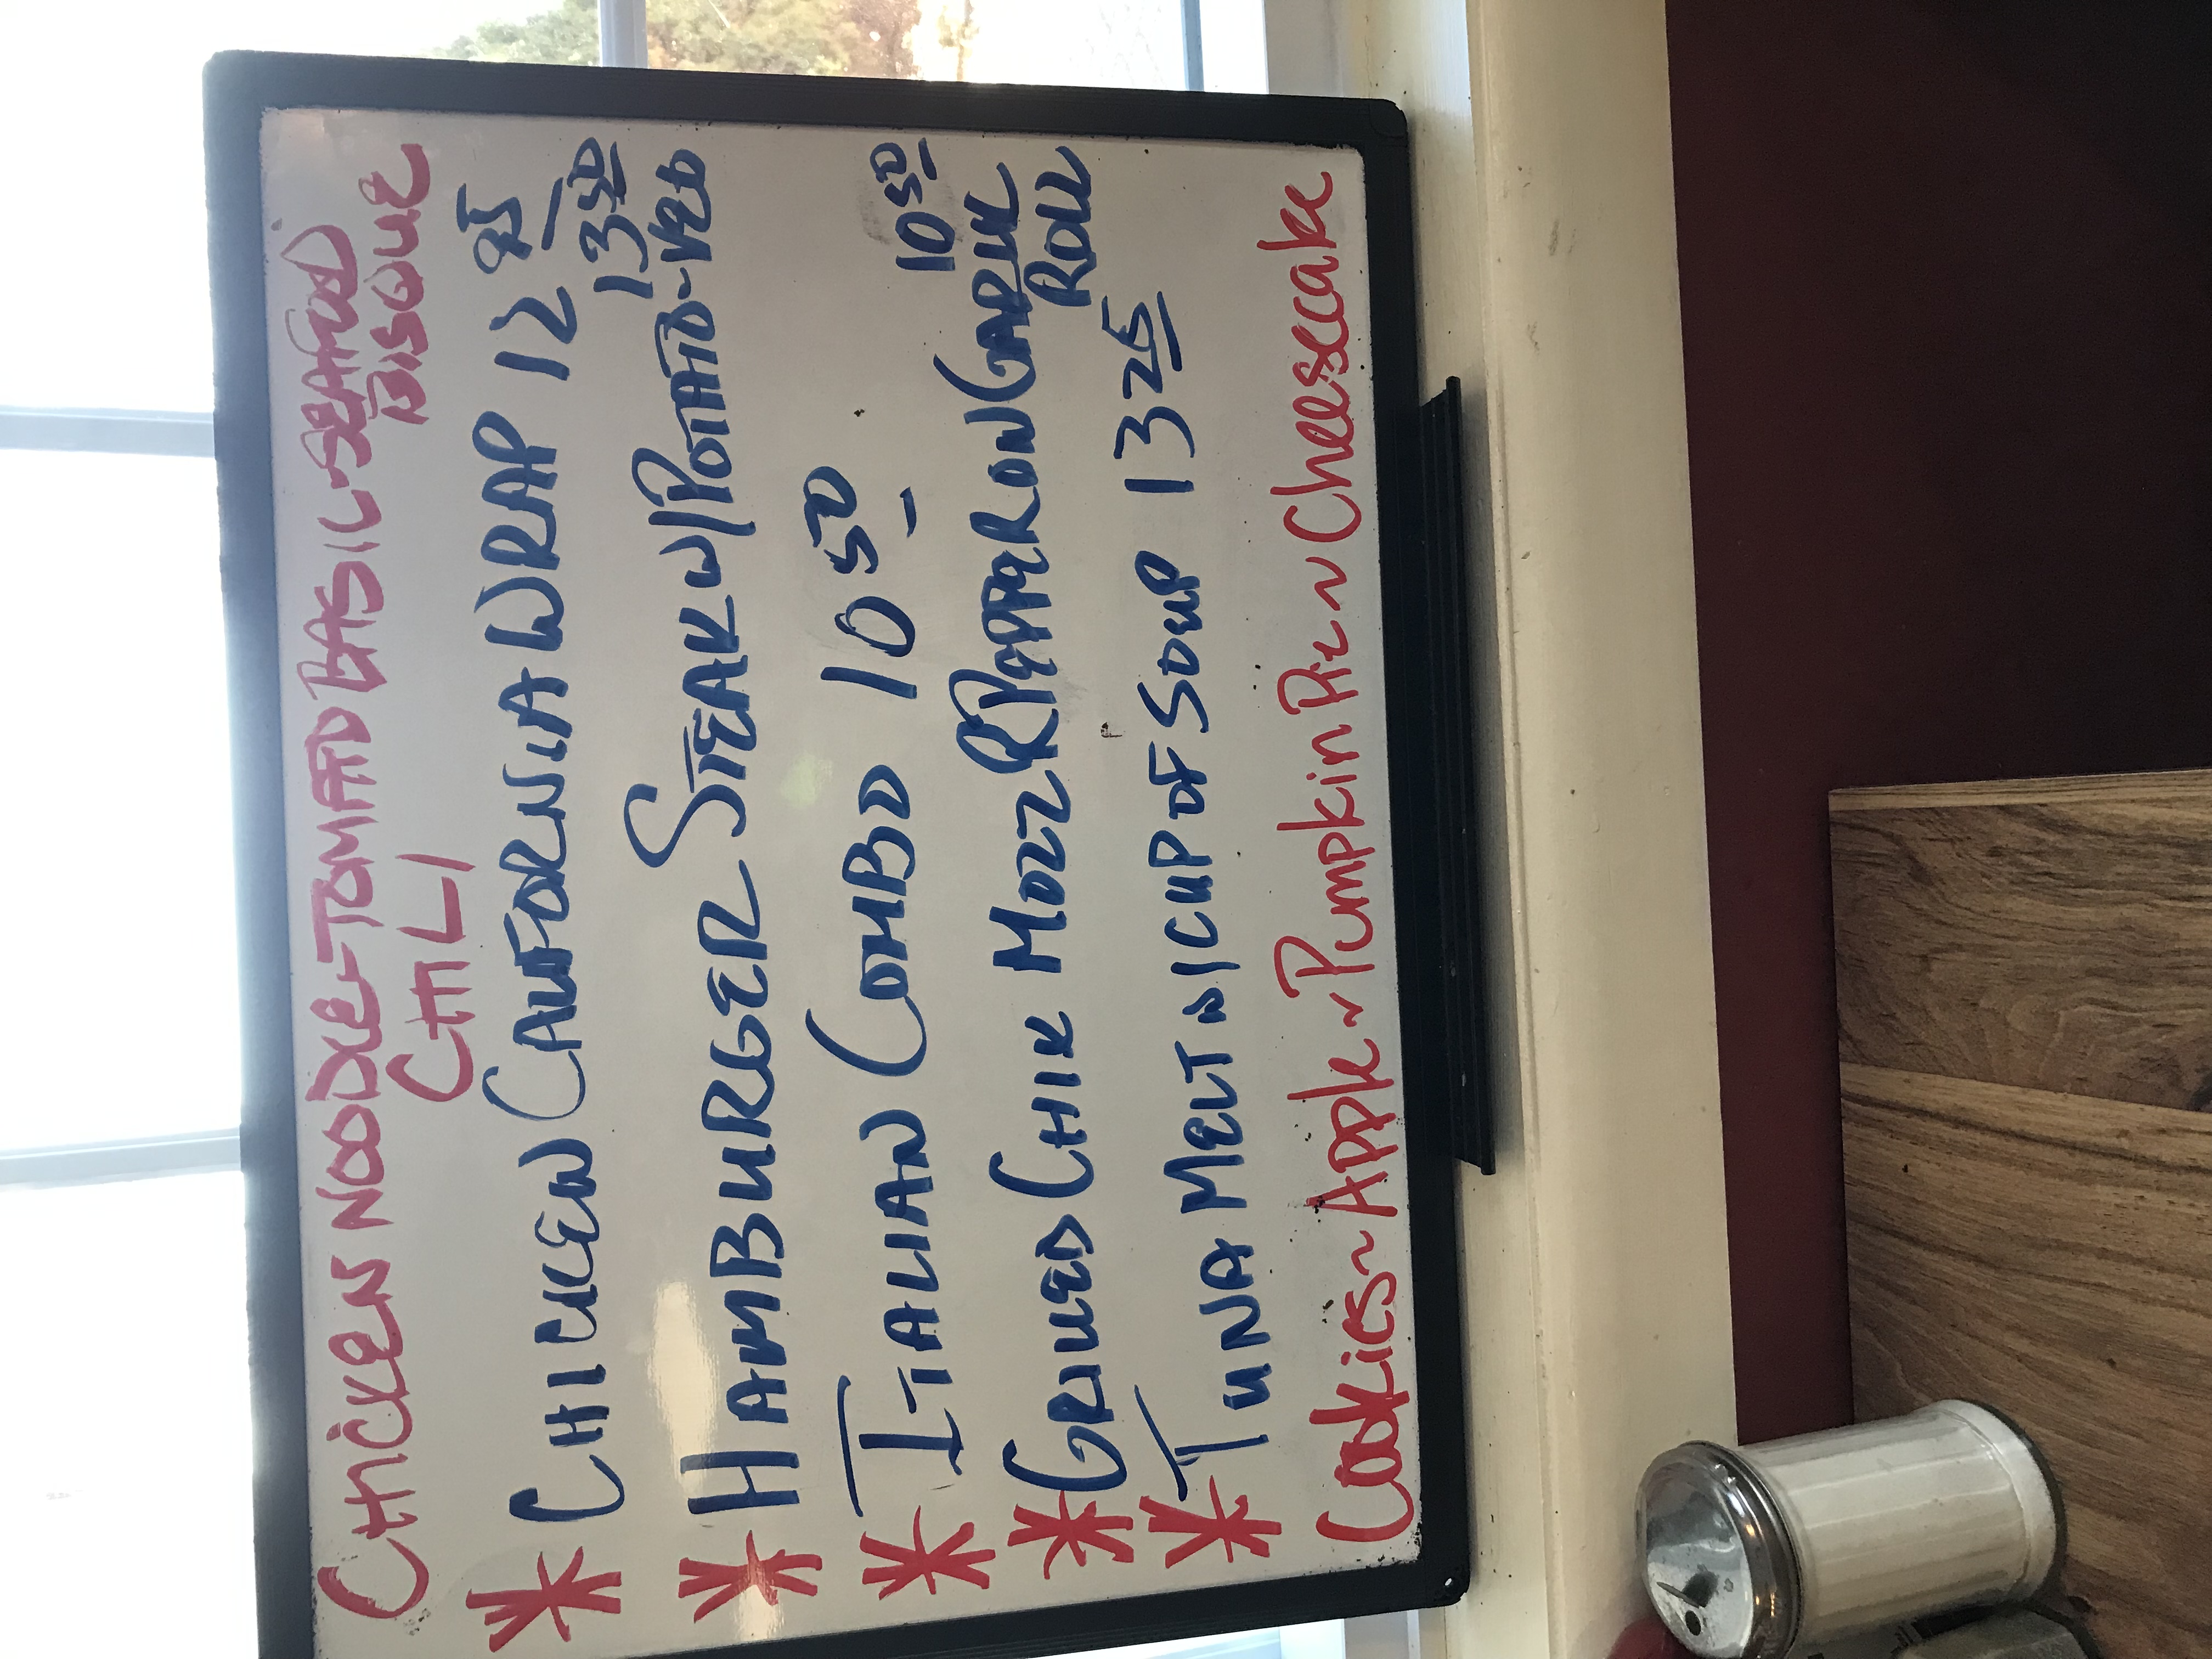 CHICKEN NOODLE-TOMATO BASIL-SEAFOOD BISQUE
CHILI
* CHICKEN CALIFORNIA WRAP 12 95
* HAMBURGER STEAK W/POTATO-VEG 13 50
* ITALIAN COMBO 10 50
* GRILLED CHIK MOZZ & PEPPERONI GARLIK ROLL 10 50
* TUNA MELT W/CUP OF SOUP 13 25
Cookies~Apple~Pumpkin Pie~Cheesecake